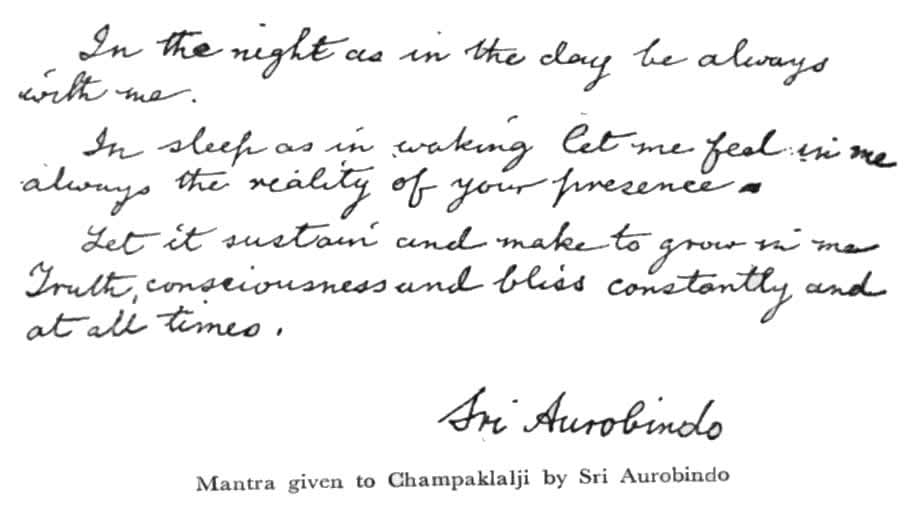 In the night as in the day be always
with me.
In sleep as in waking let me feel in me
always the reality of your presence.
Let it sustain and make to grow in me
Truth, consciousness and bliss constantly and
at all times.
Sri Aurobindo
Mantra given to Champaklalji by Sri Aurobindo